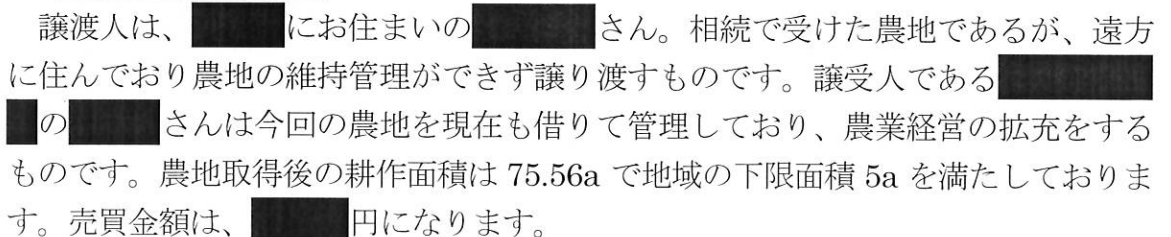 譲渡人は、にお住まいのさん。相続で受けた農地であるが、遠方
に住んでおり農地の維持管理ができず譲り渡すものです。譲受人である
のさんは今回の農地を現在も借りて管理しており、農業経営の拡充をする
ものです。農地取得後の耕作面積は 75.56a で地域の下限面積 5a を満たしておりま
す。売買金額は、円になります。